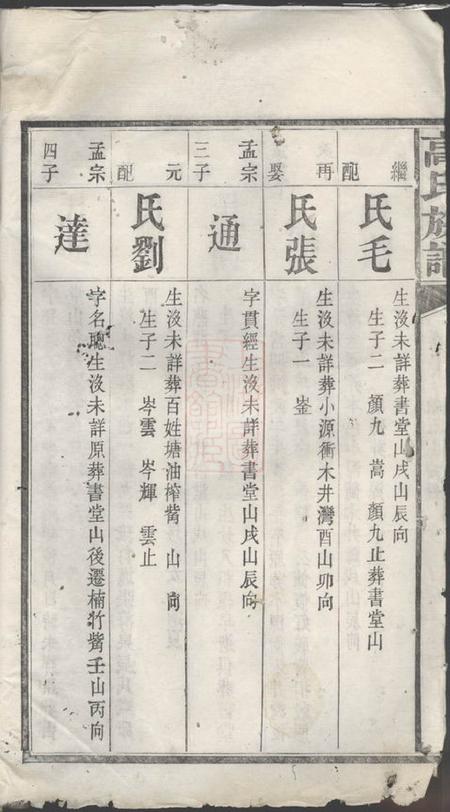 高氏族譜
繼配
毛氏
生沒未詳葬書堂山戌山辰向
生子二 顏九 嵩 顏九止葬書堂山
再娶
張氏
生沒未詳葬小源衝木井灣酉山卯向
生子一 崟
孟宗三子
通
字貫經生沒未詳葬書堂山戌山辰向
元配
劉氏
生沒未詳葬百姓塘油榨觜 山 向
生子二 岑雲 岑輝 雲止
孟宗四子
達
字名聰生沒未詳原葬書堂山後遷楠竹觜壬山丙向